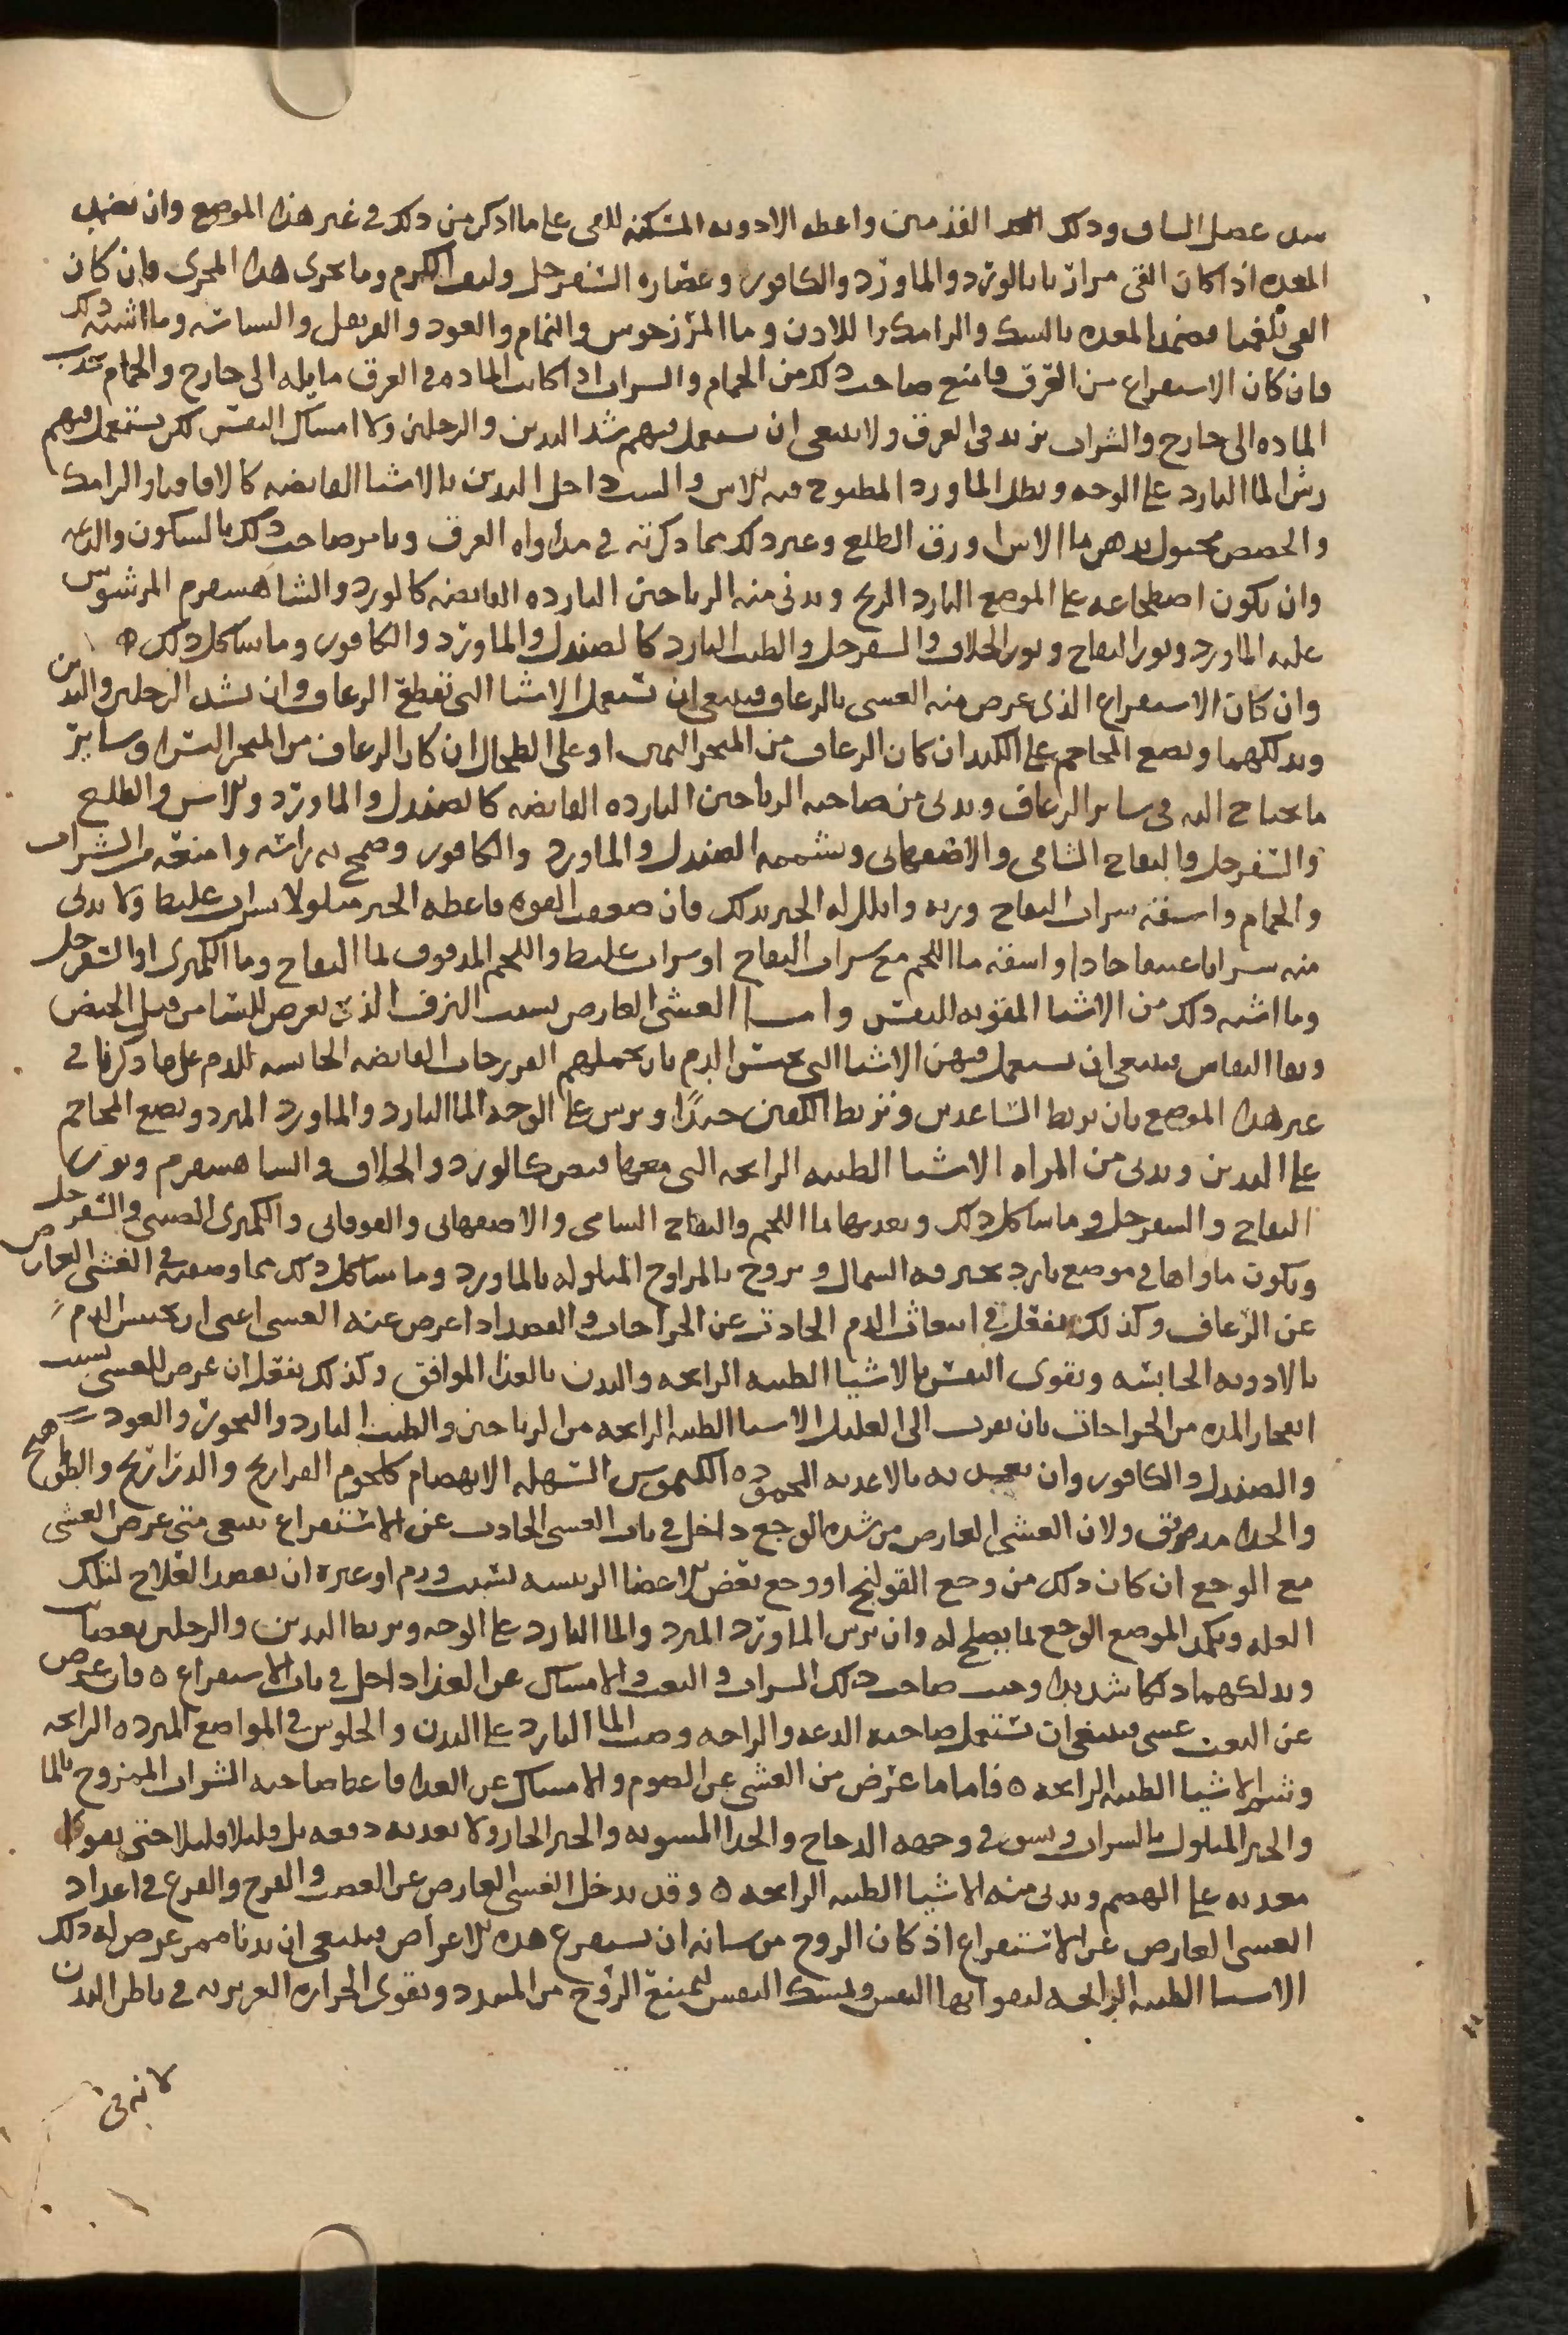 عضل الساق ودلك القدمين واعطه الادويه المسكنه للقي على ما اذكر من ذلك في غير هذا الموضع وان تضمد
المعده اذا كان القي مراريا بالورد والماورد والكافور وعصاره السفرجل وليف الكرم وما يجري هذا المجري فان كان
القي بلغميا فضمد المعده بالسك والرامك واللادن وما المرزنجوش والنمام والعود والقرنفل والبسباسه وما اشبه ذلك
فان كان الاستفراغ من العرق فامنع صاحب ذلك من الحمام والشراب اذا كانت الماده في العرق مايله الى خارج والحمام تجذب
الماده الى خارج والشراب يزيد في العرق ولا ينبغي ان يستعمل فيهم شد اليدين والرجلين ولا امساك النفس لكن يستعمل فيهم
رش الما البارد على الوجه ويطل الماورد المطبوخ فيه الاس داخل البدن بالاشيا القابضه كالاقاقيا والرامك
والحصص محلول بدهن ما الاس او ورق الطلع وغير ذلك مما ذكرته في مداواه العرق ويامر صاحب ذلك بالسكون والدعه
وان يكون اضطجاعه على الموضع البارد الريح ويدني منه الرياحين البارده القابضه كالورد والشاهسفرم المرشوش
عليه الماورد ونور التفاح ونور الخلاف والسفرجل والطيب البارد كالصندل والماورد والكافور وما شاكل ذلك ه
وان كان الاستفراغ الذي عرض منه الغشى بالرعاف فينبغي ان تستعمل الاشيا التي تقطع الرعاف وان تشد الرجلين واليدين
وتدلكهما وتضع المحاجم على الكبد ان كان الرعاف من المنخر اليمين او على الطحال ان كان الرعاف من المنخر اليسرا وساير
ما يحتاج اليه في ساير الرعاف ويدني من صاحبه الرياحين البارده القابضه كالصندل والماورد والاس والطلع
والسفرجل والتفاح الشامي والاصفهاني وشممه الصندل والماورد والكافور وضمخ به راسه وامنعه من الشراب
والحمام واسقه شراب التفاح وربه وابلل له الخبز بذلك فان ضعفت القوه فاعطه الخبز مبلولا بشراب غليظ ولا يدني
منه شرابا عتيقا حادا واسقه ما اللحم مع شراب التفاح او شراب غليظ واللحم المدقوق بما التفاح وما الكمثرى او السفرجل
وما اشبه ذلك من الاشيا المقويه للنفس واما الغشى العارض بسبب النزف الذي يعرض للنسا من قبل الحيض
وبقا النفاس فينبغي ان يستعمل فيهن الاشيا التي تحبس الدم بان يحملهم الفرزجات القابضه الحابسه للدم على ما ذكرنا في
غير هذا الموضع بان تربط الساعدين وتربط الكعبين جيدا وترش على الوجه الما البارد والماورد المبرد وتضع المحاجم
على الثديين ويدني من المراه الاشيا الطيبه الرايحه التي معها قبض كالورد والخلاف والشاهسفرم ونور
التفاح والسفرجل وما شاكل ذلك وتغذيها بما اللحم والتفاح الشامي والاصفهاني والقوقاني والكمثرى الصيني والسفرجل
ويكون ماواها في موضع بارد تخترقه الشمال ويروح بالمراوح المبلوله بالماورد وما شاكل ذلك مما وصفته في الغشى العارض
عن الرعاف وكذلك يفعل في انبعاث الدم الحادث عن الجراحات والفصد اذا عرض عنه الغشى اعني ان يحبس الدم
بالادويه الحابسه ويقوي النفس بالاشيا الطيبه الرايحه والبدن بالغذا الموافق وكذلك يفعل ان عرض الغشى بسبب
انفجار المده من الجراحات بان يقرب الى العليل الاشيا الطيبه الرايحه من الرياحين والطيب البارد والبخور والعود
والصندل والكافور وان يغذيه بالاغذيه المحموده الكيموس السهله الانهضام كلحوم الفراريج والدراريج والطيهوج
والجدا ولان الغشى العارض من شده الوجع داخل في باب الغشى الحادث عن الاستفراغ ينبغي متى عرض الغشى
مع الوجع ان كان ذلك من وجع القولنج او وجع بعض الاعضا الرييسه بسبب ورم او غيره ان يقصد العلاج لتلك
العله ويكمد الموضع الوجع بما يصلح له وان يرش الماورد المبرد والما البارد على الوجه ويربط اليدين والرجلين بعصايب
ويدلكهما دلكا شديدا وجنب صاحب ذلك الشراب والتعب والامساك عن الغذا داخل في باب الاستفراغ ه فان عرض
عن التعب غشى فينبغي ان تستعمل صاحبه الدعه والراحه وصب الما البارد على البدن والجلوس في المواضع المبرده الرايحه
وشم الاشيا الطيبه الرايحه ه فاما ما عرض من الغشى عن الصوم والامساك عن الغذا فاعط صاحبه الشراب الممزوج بالما
والخبز المبلول بالشراب في وجهه الدجاج والجدا المشويه والخبز الحار ولا تغذيه دفعه بل قليلا قليلا حتى يقوى
معدته على الهضم ويدني منه الاشيا الطيبه الرايحه ه وقد يدخل الغشى العارض عن الغضب والفرح والفزع في اعداد
الغشى العارض عن الاستفراغ اذ كان الروح من شانه ان يستفرغ هذه الاعراض فينبغي ان يدنا ممن عرض له ذلك
الاشيا الطيبه الرايحه ليقوا بها النفس ويمسك النفس ليمتنع الروح من التبدد ويقوى الحراره الغريزيه في باطن البدن
لانه في